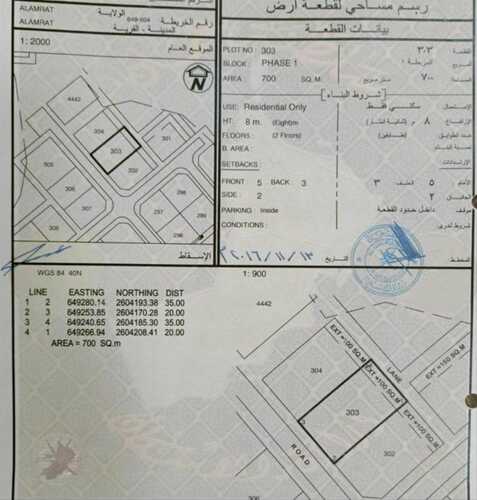 ALAMRAT
ALAMRAT
الولاية
649-604
رقم الخريطة
المدينة - القرية
1: 2000
الموقع العام
N
4442
304
303
301
302
505
506
297
298
296
الإسقاط
رسم مساحي لقطعة أرض
بيانات القطعة
PLOT NO : 303 ٣٠٣ القطعة
BLOCK : PHASE 1 المرحلة ١ المربع
AREA 700 SQ. M. متر مربع ٧٠٠ المساحة
شروط البناء
USE: Residential Only سكني فقط الإستعمال
HT: 8 m. (Eight)m ٨ م
FLOORS : (2 Floors) (طابقين) عدد الطوابق
B. AREA :
SETBACKS : الإرتدادات
FRONT 5 BACK : 3 ٣ الخلف ٥ الأمام
SIDE : 2 ٢
PARKING : Inside داخل حدود القطعة موقف
CONDITIONS : شروط أخرى
التاريخ ٢٠١٦/١١/١٣
المخطط
WGS 84 40N
1 : 900
LINE EASTING NORTHING DIST
1 2 649280.14 2604193.38 35.00
2 3 649253.85 2604170.28 20.00
3 4 649240.65 2604185.30 35.00
4 1 649266.94 2604208.41 20.00
AREA = 700 SQ.m
4442
304
EXT =100 SQ.M
EXT =100 SQ.M
LANE
EXT =150 SQ.M
EXT =100 SQ.M
303
302
ROAD
306